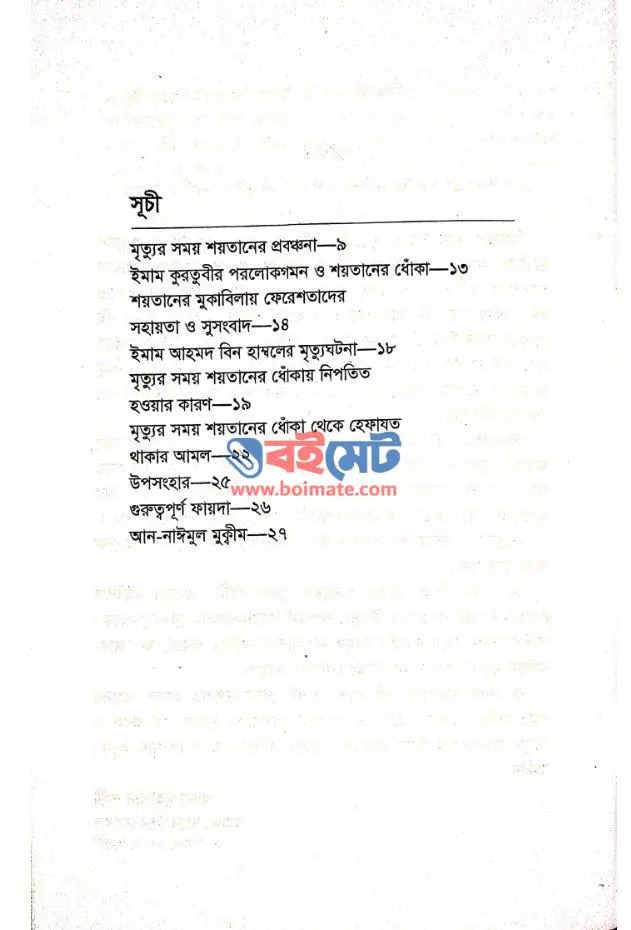 সূচী
মৃত্যুর সময় শয়তানের প্রবঞ্চনা—৯
ইমাম কুরতুবীর পরলোকগমন ও শয়তানের ধোঁকা—১৩
শয়তানের মুকাবিলায় ফেরেশতাদের
সহায়তা ও সুসংবাদ—১৪
ইমাম আহমদ বিন হাম্বলের মৃত্যুঘটনা—১৮
মৃত্যুর সময় শয়তানের ধোঁকায় নিপতিত
হওয়ার কারণ—১৯
মৃত্যুর সময় শয়তানের ধোঁকা থেকে হেফাযত
থাকার আমল—২২
বইমেট
উপসংহার—২৫
www.boimate.com
গুরুত্বপূর্ণ ফায়দা—২৬
আন-নাঈমুল মুক্বীম—২৭